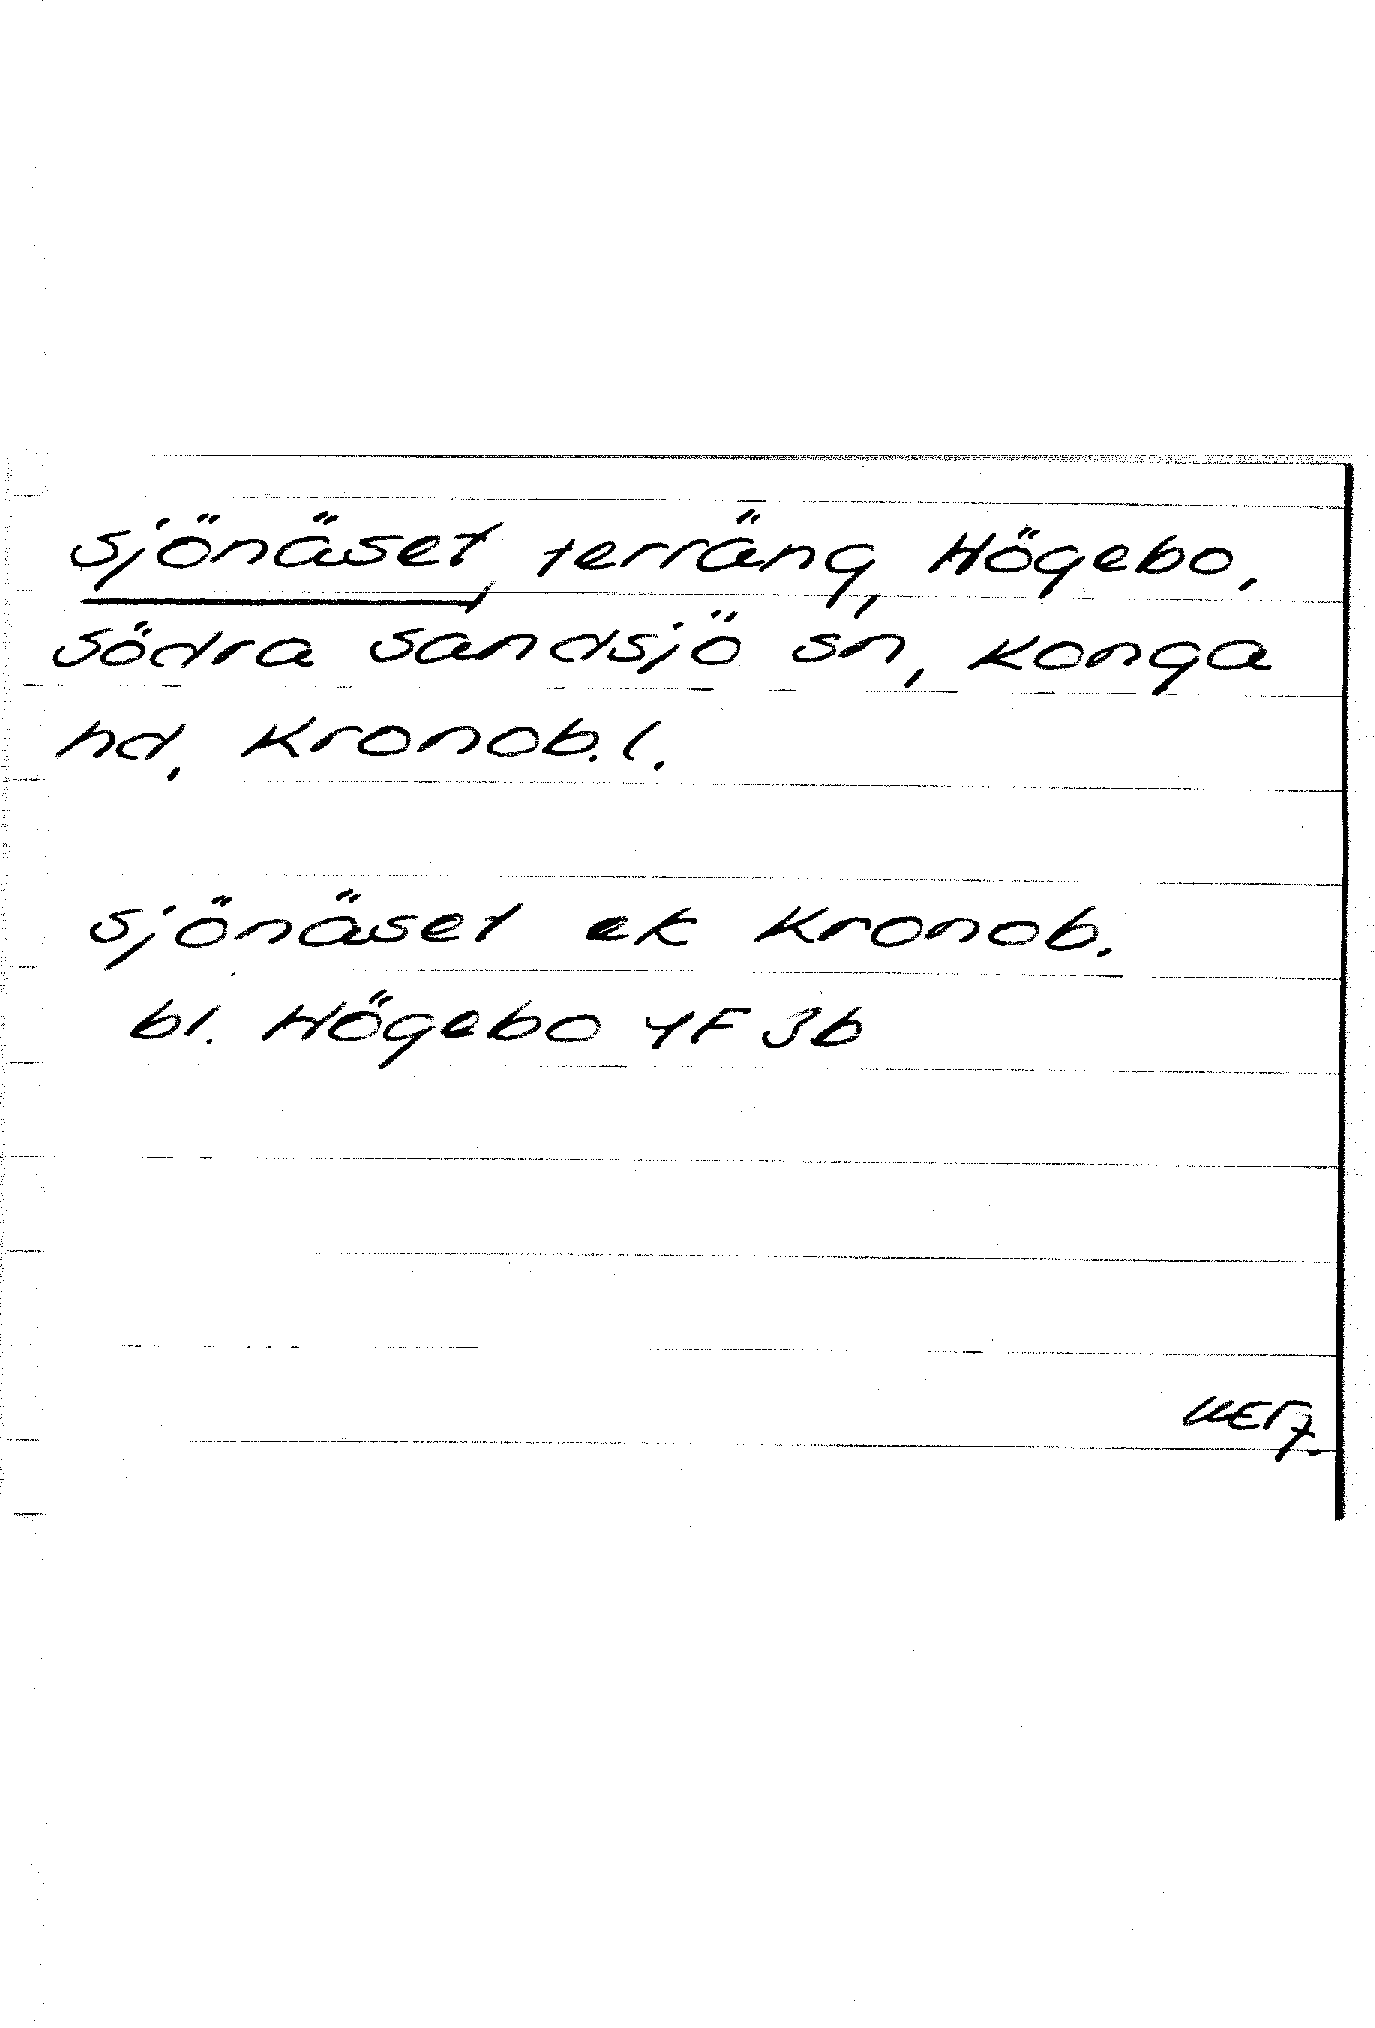 Sjönäset, terräng, Högebo,
Södra Sandsjö sn, Konga
hd, Kronob. l.
Sjönäset ek Kronob.
bl. Högebo 4F 3b